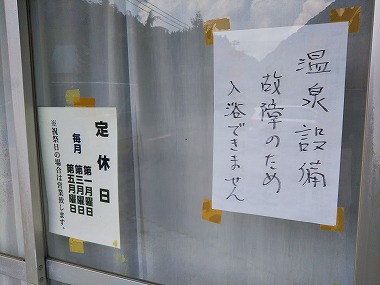 温泉設備
故障のため
入浴できません
定休日
毎月
第一月曜日
第三月曜日
第五月曜日
※祝祭日の場合は営業致します。